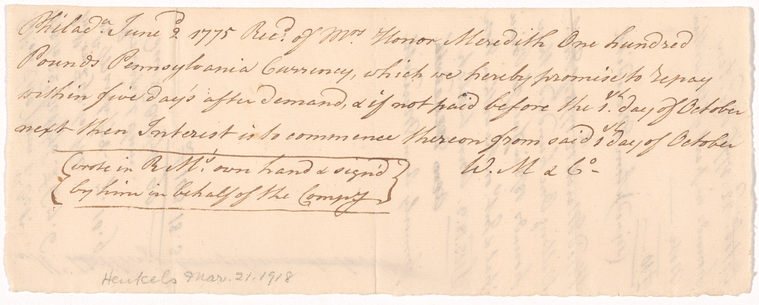 Philad.ª June 2.d 1775 Rec.d of Mrs Honor Meredith One hundred
Pounds Pennsylvania Currency, which we hereby promise to repay
within five day's after demand, & if not paid before the 1.st day of October
next then Interest is to commence thereon from said 1.st day of October
wrote in R M.s own hand & sign'd
by him in behalf of the Compy
W. M & Co-
Henkels Mar. 21. 1918